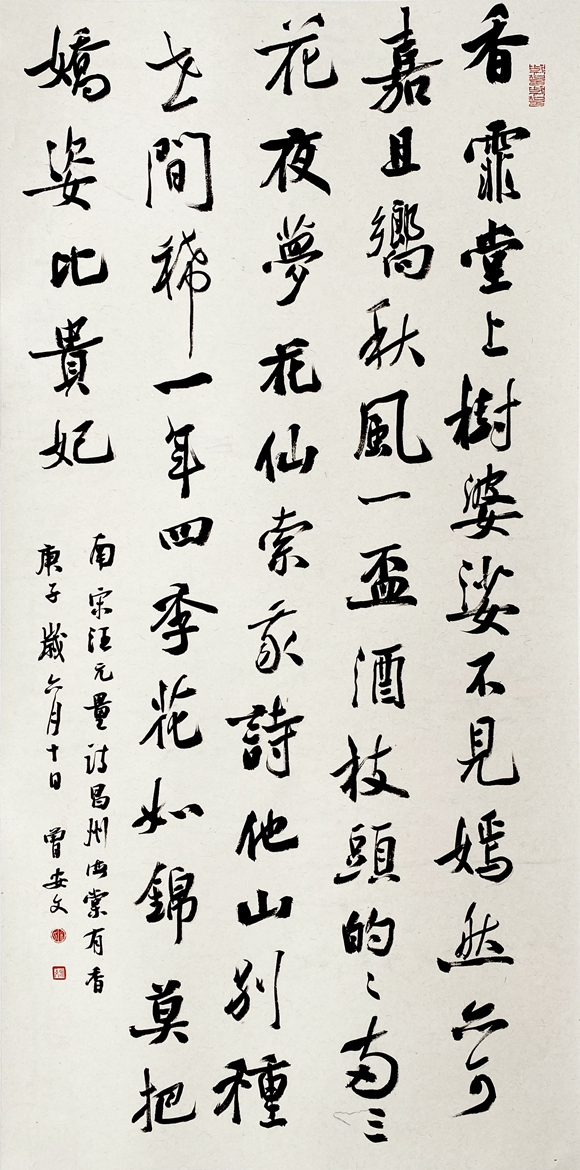 香霏堂上樹婆娑不見嫣然亦可
嘉且嚮秋風一盃酒枝頭的〻兩三
花夜夢花仙索我詩他山別種
世間稀一年四季花如錦莫把
嬌姿比貴妃
南宋汪元量詩昌州海棠有香
庚子歲六月十日 曾安文